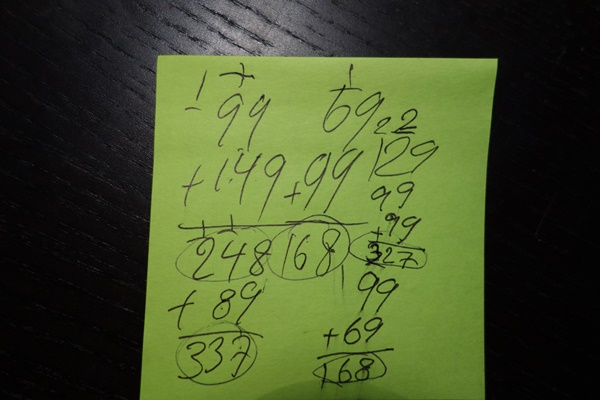 1 1
99
+149
248
+89
337
1
69
+99
168
2 2
129
99
+99
327
1
99
+69
168